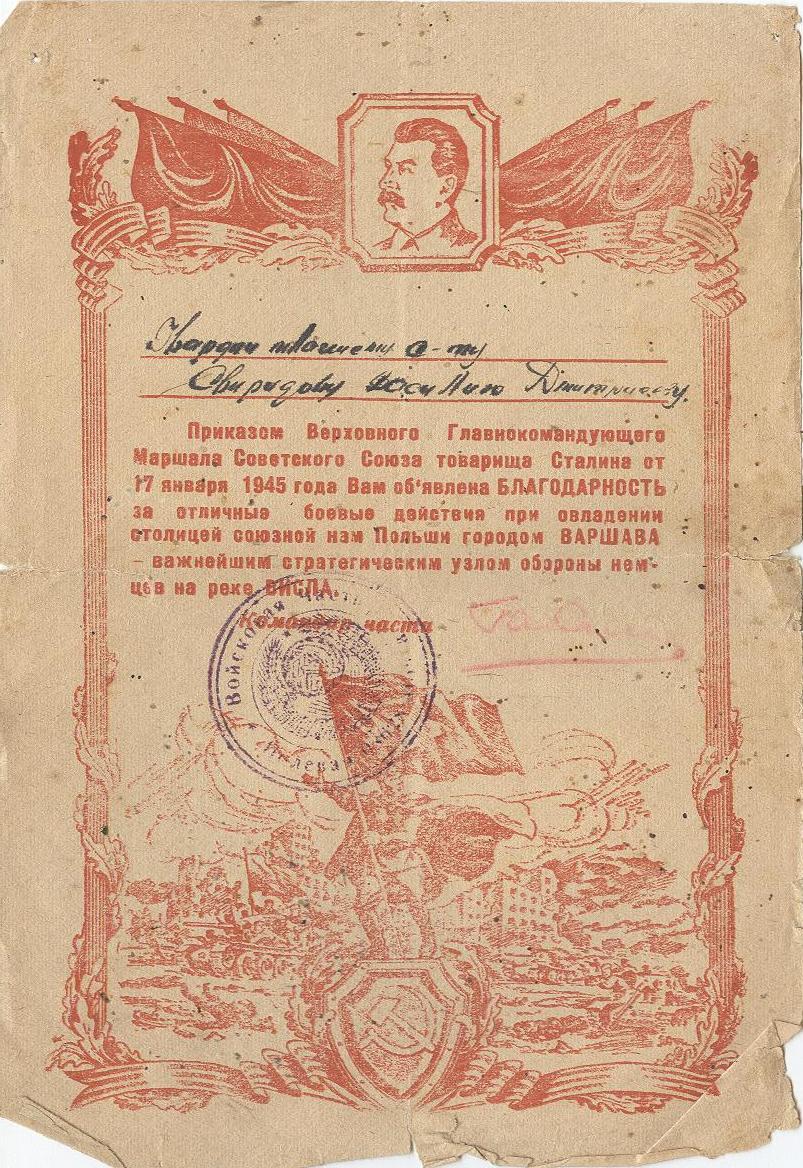 Гвардии младшему с-ту
Свиридову Василию Дмитриевичу.
Приказом Верховного Главнокомандующего
Маршала Советского Союза товарища Сталина от
17 января 1945 года Вам об'явлена БЛАГОДАРНОСТЬ
за отличные боевые действия при овладении
столицей союзной нам Польши городом ВАРШАВА
– важнейшим стратегическим узлом обороны нем-
цев на реке ВИСЛА.
Командир части
Войсковая часть